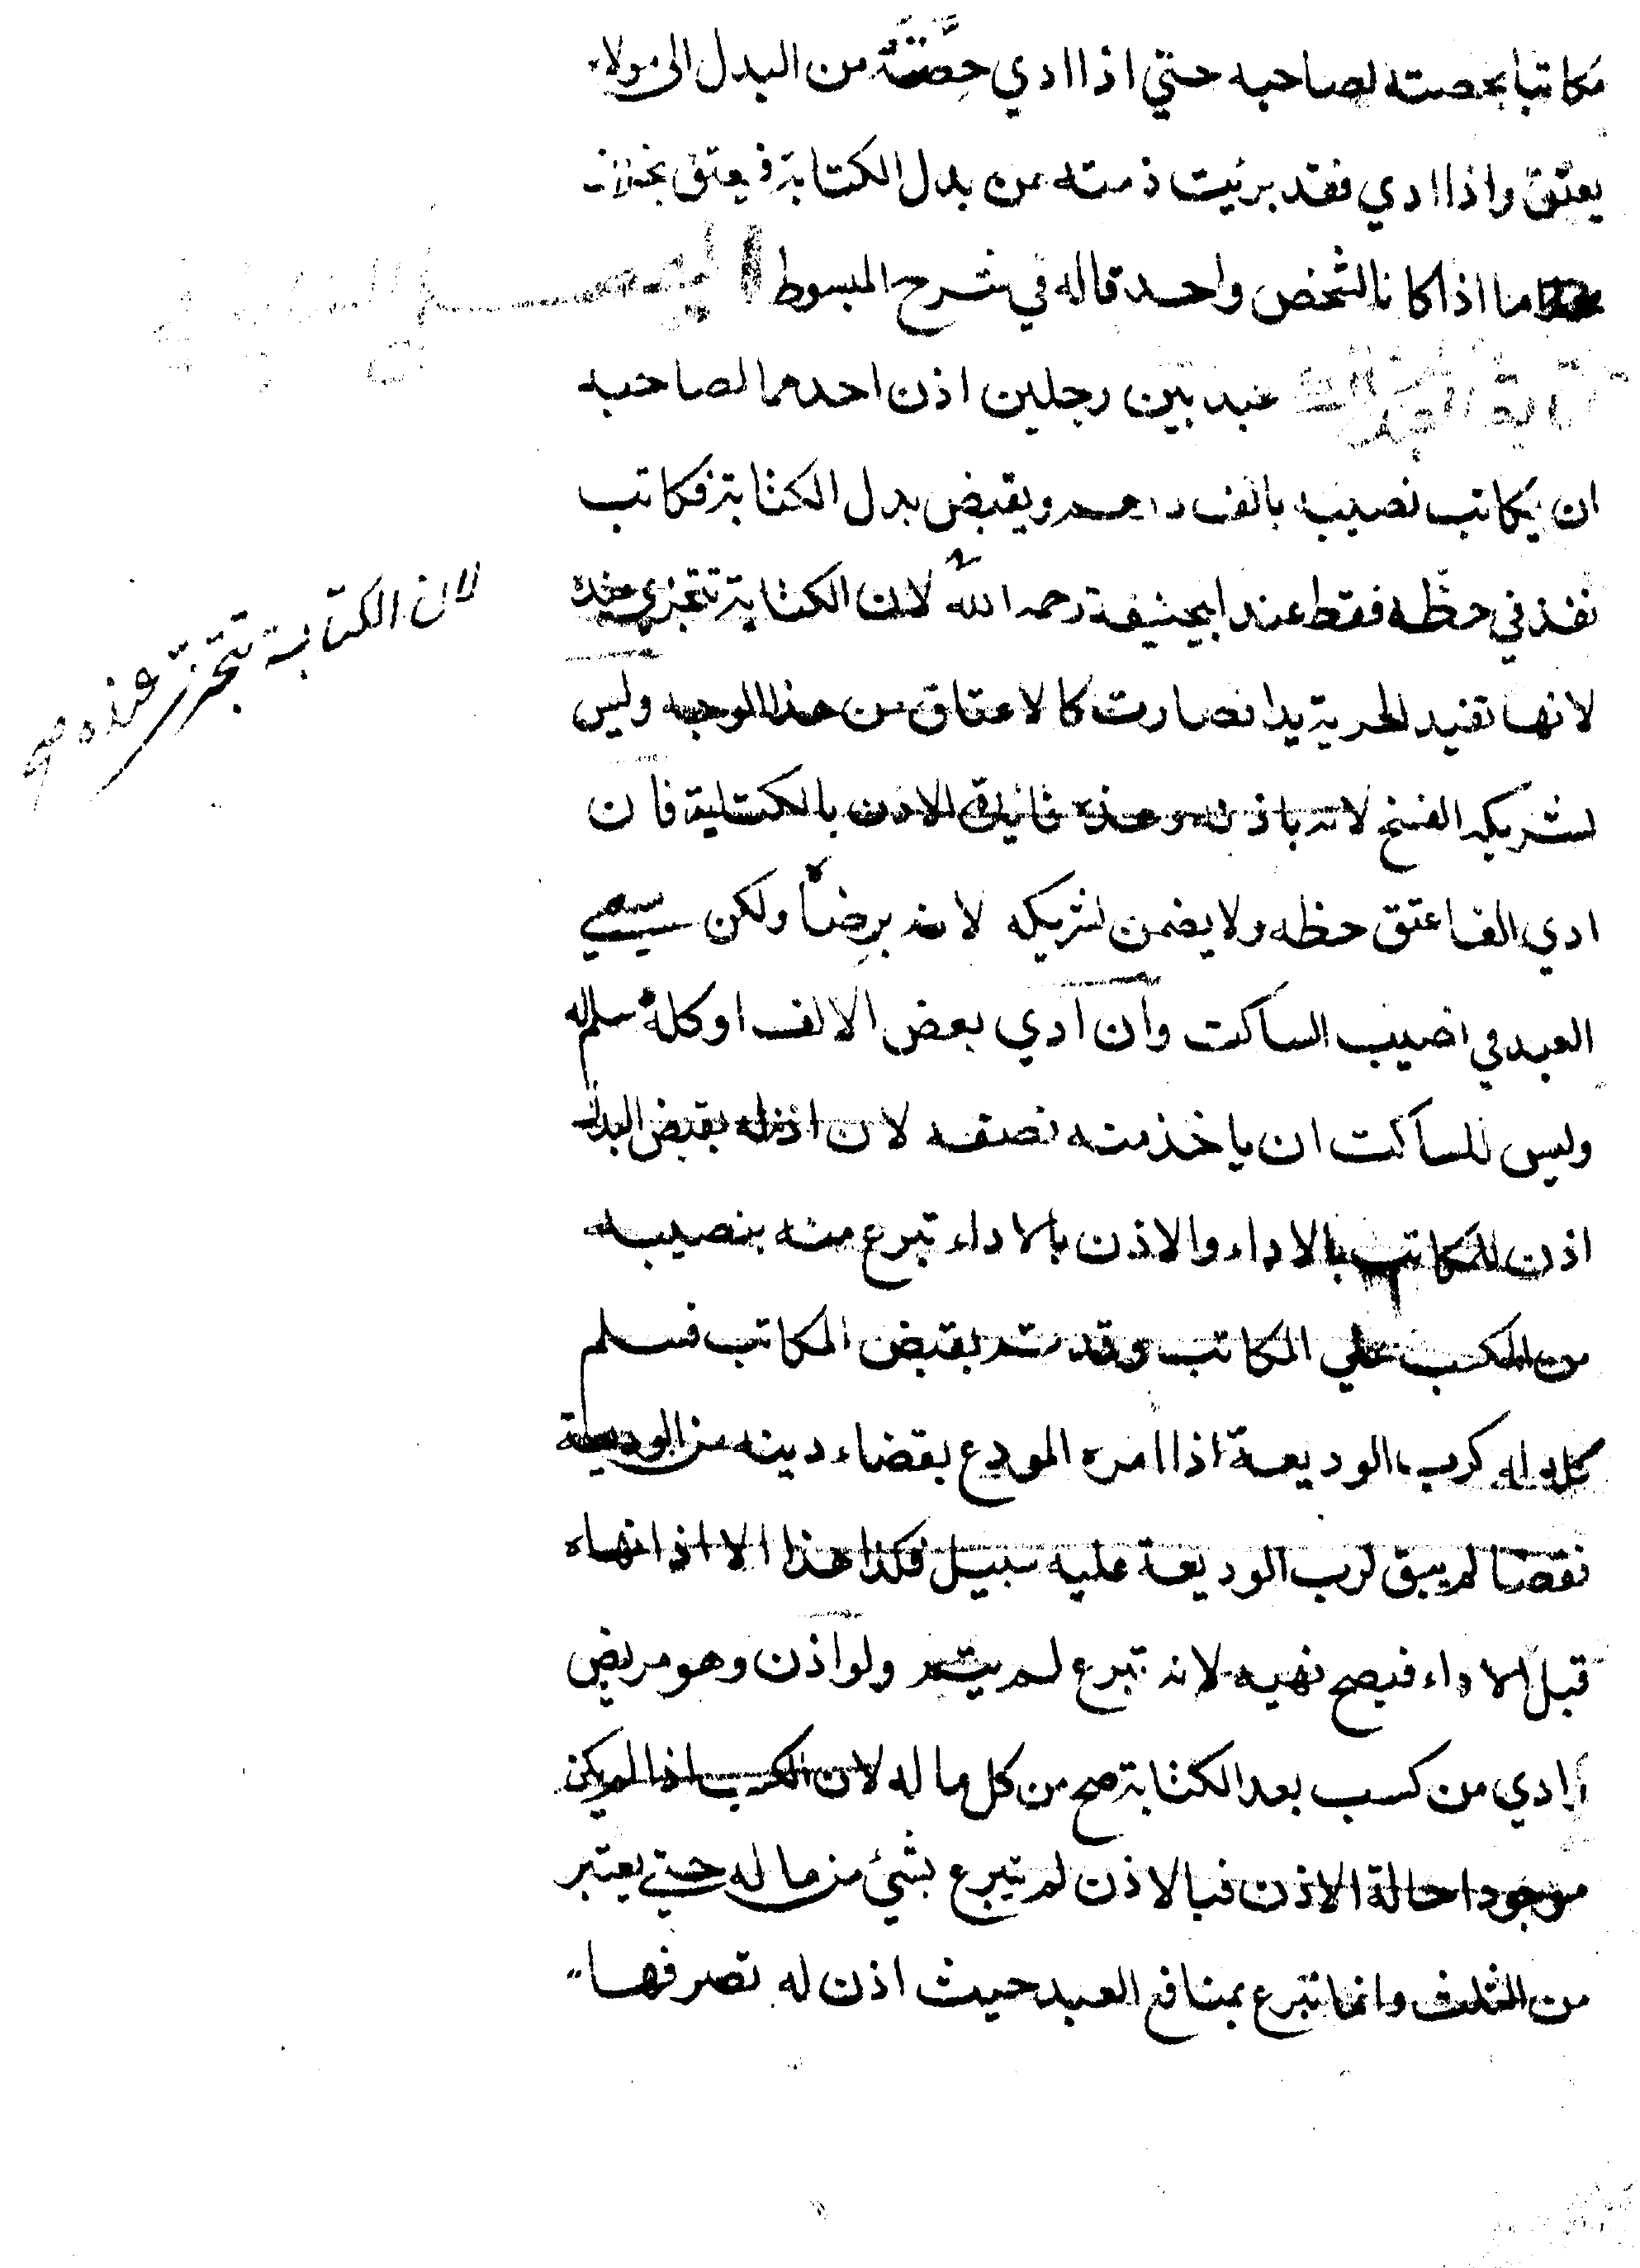 مكاتبا بحصته لصاحبه حتي اذا ادي حصته من البدل الى مولاه
يعتق واذا ادي فقد برئيت ذمته من بدل الكتابة فيعتق بخلاف
ما اذا كانا لشخص واحد قاله في شرح المبسوط
عبد بين رجلين اذن احدهما لصاحبه
ان يكاتب نصيبه بالف درهم ويقبض بدل الكتابة فكاتب
نفذ في حظه فقط عند ابيحنيفة رحمه الله لان الكتابة تتجزي عنده
لانها تفيد الحرية يدا فصارت كالاعتاق من هذا الوجه وليس
لشريكه الفسخ لانه باذنه وهذه فائدة الاذن بالكتابة فان
ادي الفا عتق حظه ولا يضمن لشريكه لانه برضاه ولكن سيسعي
العبد في نصيب الساكت وان ادي بعض الالف او كله سلم له
وليس للساكت ان ياخذ منه نصفه لان اذنه بقبض البدل
اذن للمكاتب بالاداء والاذن بالاداء تبرع منه بنصيبه
من الكسب علي المكاتب وقد تم بقبض المكاتب فسلم
كله له كرب الوديعة اذا امره المودع بقضاء دينه من الوديعة
فقضا لم يبق لرب الوديعة عليه سبيل فكذا هذا الا اذا نهاه
قبل الاداء فيصح نهيه لانه تبرع لم يتم ولو اذن وهو مريض
وادي من كسب بعد الكتابة صح من كل ماله لان الكسب اذا لم يكن
موجودا حالة الاذن فبالاذن لم يتبرع بشئ من ماله حتي يعتبر
من الثلث وانما تبرع بمنافع العبد حيث اذن له تصرفها
لان الكتابة تتجزى عنده صح